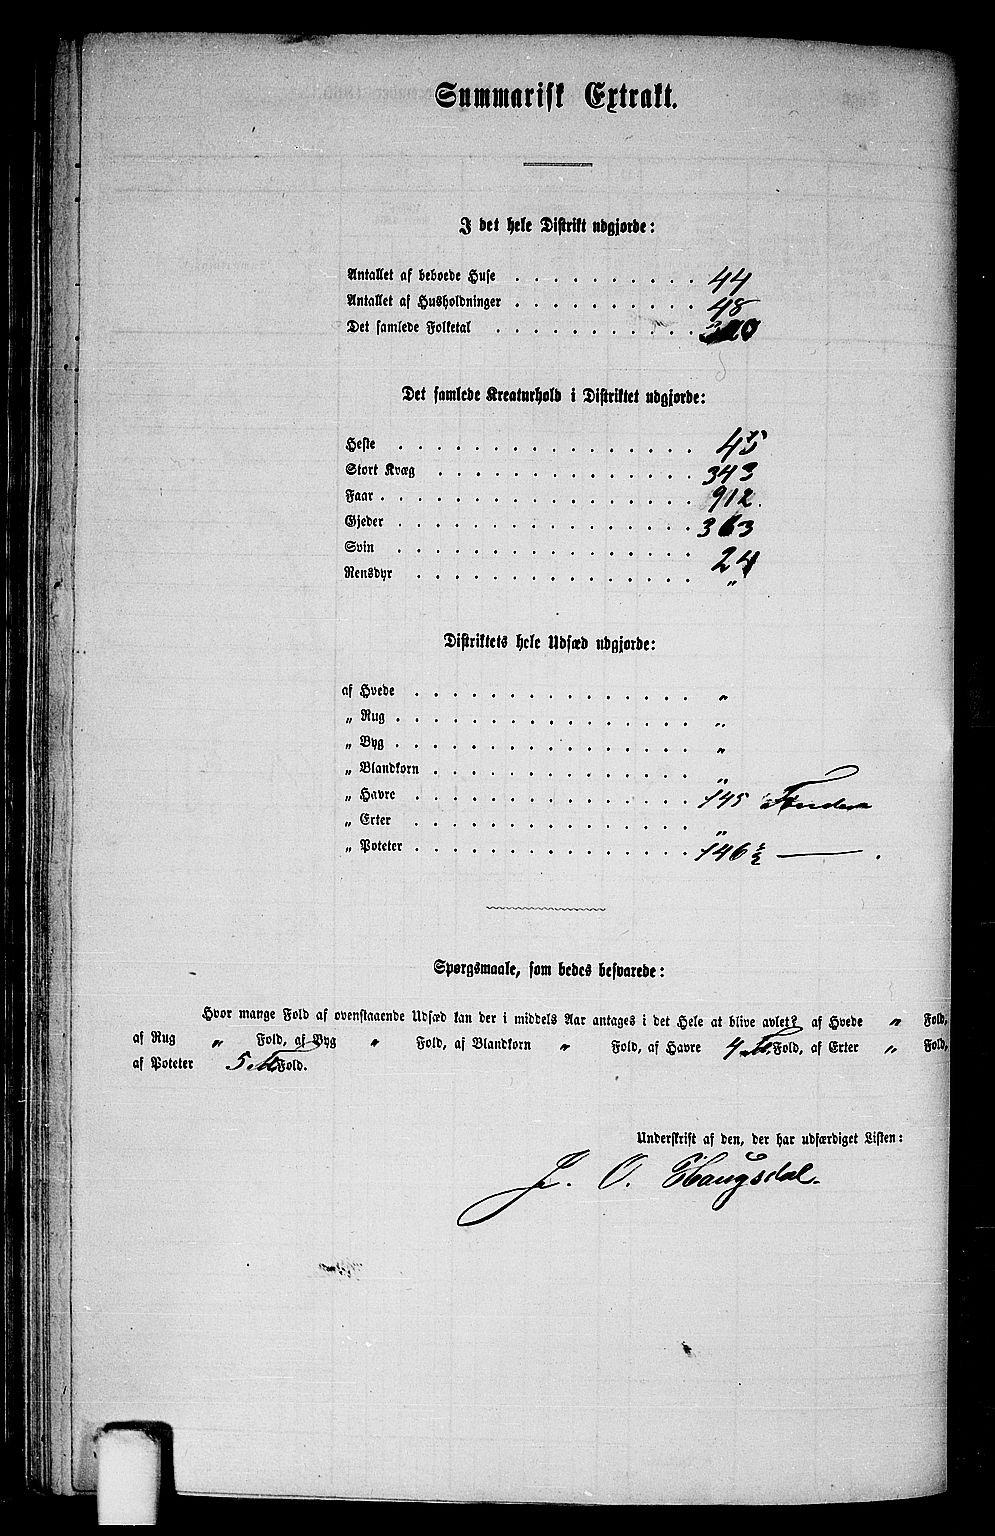 Summarisk Extrakt.
I det hele Distrikt udgjorde:
Antallet af beboede Huse . . . . . . . . . . 44
Antallet af Husholdninger . . . . . . . . . . 48
Det samlede Folketal . . . . . . . . . . .
Det samlede Kreaturhold i Distriktet udgjorde:
Heste . . . . . . . . . . . . . . . . 45
Stort Kvæg . . . . . . . . . . . . . . 343
Faar . . . . . . . . . . . . . . . . . 912.
Gjeder . . . . . . . . . . . . . . . . 363
Svin . . . . . . . . . . . . . . . . 24
Rensdyr . . . . . . . . . . . . . . . "
Distriktets hele Udsæd udgjorde:
af Hvede . . . . . . . . . . . . . . . "
„ Rug . . . . . . . . . . . . . . . . "
„ Byg . . . . . . . . . . . . . . . . "
„ Blandkorn . . . . . . . . . . . . . . "
„ Havre . . . . . . . . . . . . . . . 145 Tønder
„ Erter . . . . . . . . . . . . . . . "
„ Poteter . . . . . . . . . . . . . . . 146 ½ — .
Spørgsmaale, som bedes besvarede:
Hvor mange Fold af ovenstaaende Udsæd kan der i middels Aar antages i det Hele at blive avlet? af Hvede " Fold,
af Rug " Fold, af Byg " Fold, af Blandkorn " Fold, af Havre 4 Fold, af Erter " Fold,
af Poteter 5 Fold.
Underskrift af den, der har udfærdiget Listen:
J. O. Haugsdal.